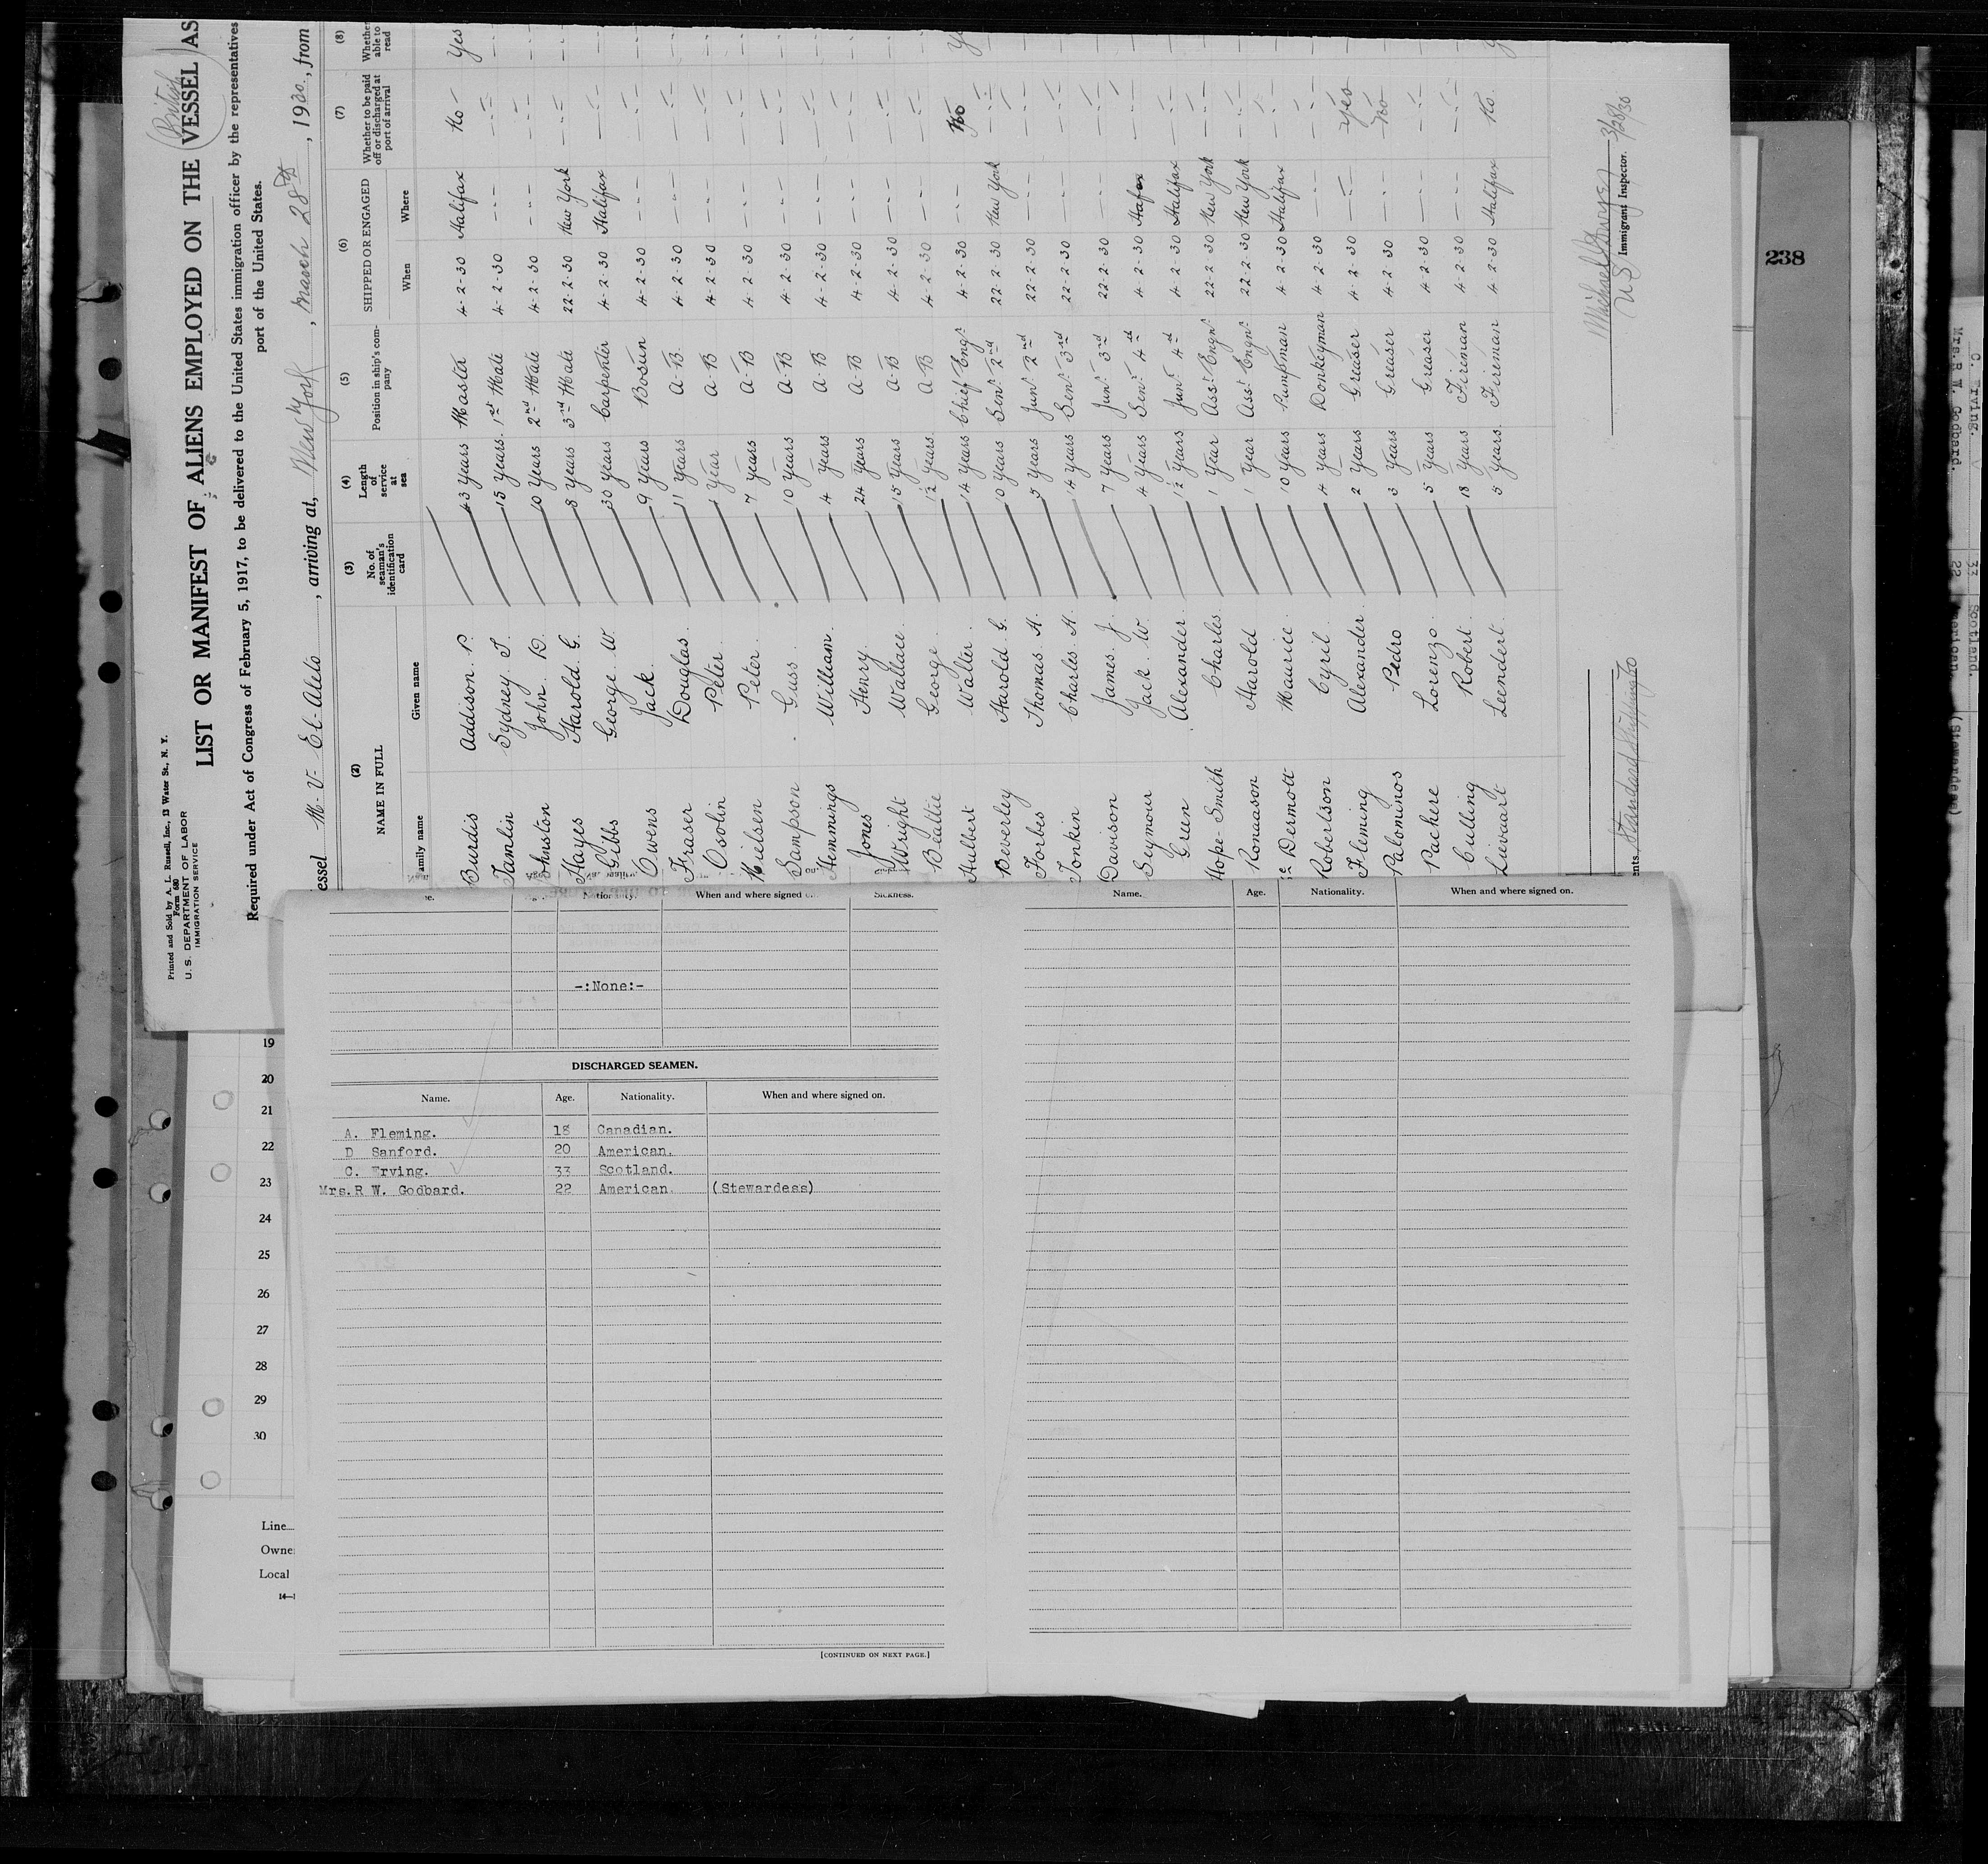 Printed and Sold by A. L. Russell, Inc., 13 Water St., N. Y.
Form 680
U. S. DEPARTMENT OF LABOR
IMMIGRATION SERVICE
(British)
LIST OR MANIFEST OF ALIENS EMPLOYED ON THE VESSEL AS
Required under Act of Congress of February 5, 1917, to be delivered to the United States immigration officer by the representatives
port of the United States.
essel M. V. El-Aleto, arriving at, New York, March 28th, 1930, from
(2) (3) (4) (5) (6) (7) (8)
NAME IN FULL No. of seaman's identification card Length of service at sea Position in ship's com-pany SHIPPED OR ENGAGED Whether to be paid off or discharged at port of arrival Whether able to read
amily name Given name When Where
Burdis Addison P. 43 Years Master 4-2-30 Halifax No Yes
Tamlin Sydney T. 15 Years 1st Mate 4-2-30 -"-
Johnston John D. 10 Years 2nd Mate 4-2-30 -"-
Hayes Harold G. 8 Years 3rd Mate 22-2-30 New York
Gibbs George W 30 Years Carpenter 4-2-30 Halifax
Owens Jack 9 Years Bosun 4-2-30 -"-
Fraser Douglas 11 Years A-B 4-2-30 -"-
Osolin Peter 1 Year A-B 4-2-30 -"-
Nielsen Peter 7 Years A-B 4-2-30 -"-
Sampson Guss 10 Years A-B 4-2-30 -"-
Hemmings William 4 Years A-B 4-2-30 -"-
Jones Henry 24 Years A-B 4-2-30 -"-
Wright Wallace 15 Years A-B 4-2-30 -"-
Beattie George 1½ Years A-B 4-2-30 -"-
Hulbert Walter 14 Years Chief Engr. 4-2-30 -"- No Ye
Beverley Harold G. 10 Years Senr. 2nd 22-2-30 New York
Forbes Thomas H. 5 Years Junr. 2nd 22-2-30 -"-
Tonkin Charles H. 14 Years Senr. 3rd 22-2-30 -"-
Davison James J. 7 Years Junr. 3rd 22-2-30 -"-
Seymour Jack W. 4 Years Senr. 4th 4-2-30
Green Alexander 1½ Years Junr. 4th 4-2-30 Halifax
Hope-Smith Charles 1 Year Asst. Engr. 22-2-30 New York
Ronaason Harold 1 Year Asst. Engr. 22-2-30 New York
Dermott Maurice 10 Years Pumpman 4-2-30 Halifax
Robertson Cyril 4 Years Donkeyman 4-2-30 -"-
Fleming Alexander 2 Years Greaser 4-2-30 -"- Yes
Palominos Pedro 3 Years Greaser 4-2-30 -"- No
Pachere Lorenzo 5 Years Greaser 4-2-30 -"-
Culling Robert 18 Years Fireman 4-2-30 -"-
Lievaart Leendert 5 Years Fireman 4-2-30 Halifax No.
3/28/30
U.S. Immigrant Inspector.
ents Standard Shipping Co
238
Nationality. When and where signed Sickness.
-:None:-
DISCHARGED SEAMEN.
Name. Age. Nationality. When and where signed on.
A. Fleming. 18 Canadian.
D Sanford. 20 American.
C. Erving. 33 Scotland.
Mrs. R W. Godbard. 22 American. (Stewardess)
[CONTINUED ON NEXT PAGE.]
Name. Age. Nationality. When and where signed on.
19
20
21
22
23
24
25
26
27
28
29
30
Line
Owne
Local
14—1
C. Erving. 33 Scotland.
Mrs. R W. Godbard. 22 American. (Stewardess)